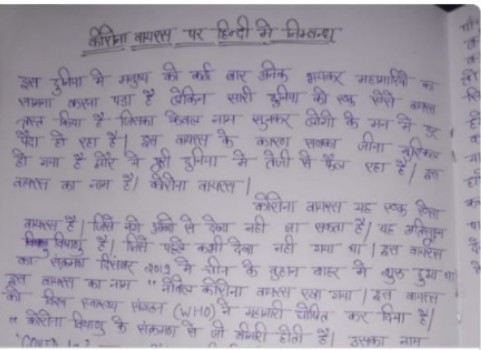 कोरोना वायरस पर हिन्दी में निबन्ध
इस दुनिया में मनुष्य को कई बार अनेक भयंकर महामारियों का
सामना करना पड़ा है लेकिन सारी दुनिया को एक ऐसे वायरस
किया है जिसका केवल नाम सुनकर लोगों के मन में डर
पैदा हो रहा है। इस वायरस के कारण सबका जीना मुश्किल
हो गया है और ये पूरी दुनिया में तेजी से फैल रहा है। इस
वायरस का नाम है। कोरोना वायरस।
कोरोना वायरस यह एक ऐसा
वायरस है। जिसे नंगी आंखों से देखा नही जा सकता है। यह अतिसूक्ष्म
विषाणु है। जिसे पहले कभी देखा नही गया था। इस वायरस
का संक्रमण दिसंबर 2019 में चीन के वुहान शहर में शुरू हुआ था
इस वायरस का नाम "नोवेल कोरोना वायरस रखा गया। इस वायरस
को विश्व स्वास्थ्य संगठन (WHO) ने महामारी घोषित कर दिया है।
"कोरोना विषाणु के संक्रमण से जो बीमारी होती है। उसका नाम